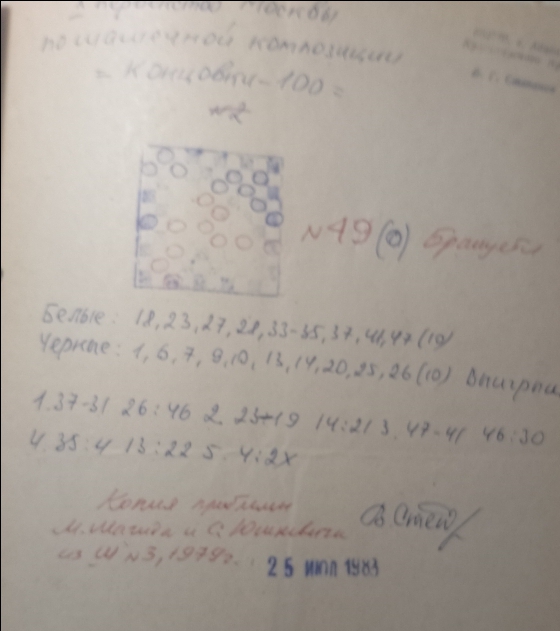 первенство Москвы
по шашечной композиции
= Концовки - 100 =
№2
№ 49 (0) Бракуется
Белые: 18, 23, 27, 28, 33-35, 37, 41, 47 (10)
Черные: 1, 6, 7, 9, 10, 13, 14, 20, 25, 26 (10)
1. 37-31 26:46 2. 23-19 14:21 3. 47-41 46:30
4. 35:4 13:22 5. 4:2x
Копия проблемы
М. Магида и С. Юшкевича
из Ш №3, 1979г.
25 ИЮЛ 1983